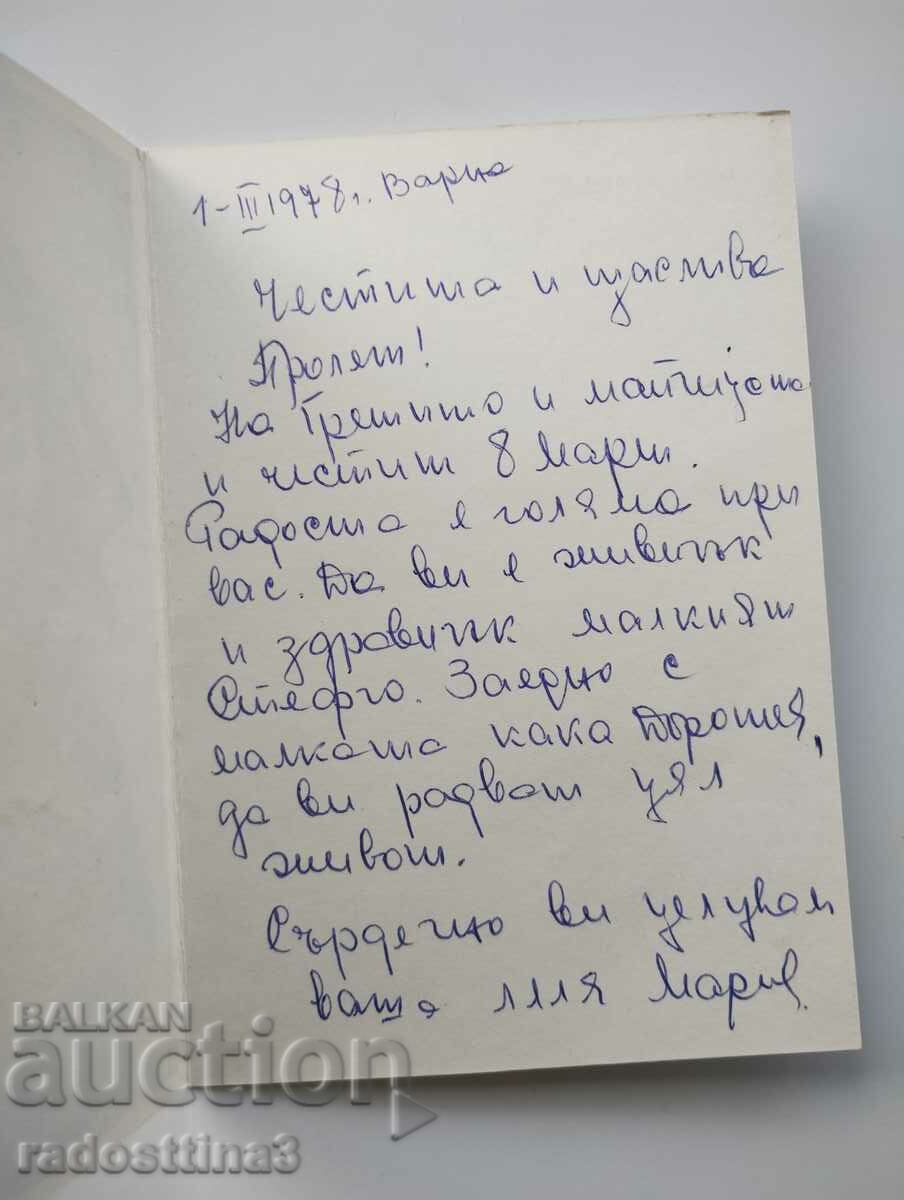 1-III 1978г. Варна
Честита и щастлива
Пролет!
На и майчицата
и честит 8 март.
Радостта е голяма при
вас. Да ви е живичък
и здравичък малкият
Стефчо. Заедно с
малката кака Доротея,
да ви радват цял
живот.
Сърдечно ви целувам
ваша леля Мария.
BALKAN
auction
radosttina3